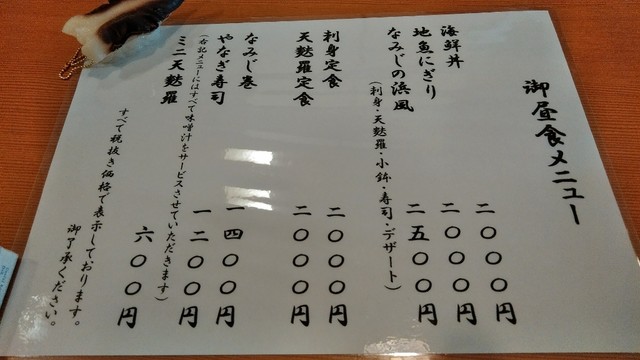 御昼食メニュー
海鮮丼 二〇〇〇円
地魚にぎり 二〇〇〇円
なみじの浜風 二五〇〇円
(刺身・天麩羅・小鉢・寿司・デザート)
刺身定食 二〇〇〇円
天麩羅定食 二〇〇〇円
なみじ巻 一四〇〇円
やなぎ寿司 一二〇〇円
(右記メニューにはすべて味噌汁をサービスさせていただきます)
ミニ天麩羅 六〇〇円
すべて税抜き価格で表示しております。
御了承ください。